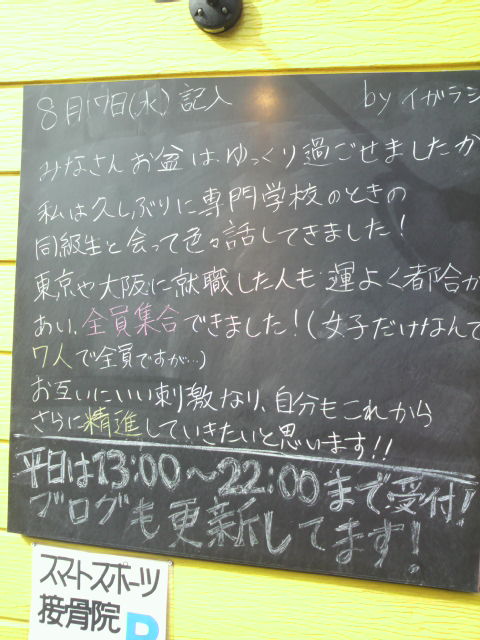 8月17日(水)記入 byイガラシ
みなさんお盆は、ゆっくり過ごせましたか
私は久しぶりに専門学校のときの
同級生と会って色々話してきました!
東京や大阪に就職した人も運よく都合が
あい、全員集合できました!(女子だけなんで
7人で全員ですが…)
お互いにいい刺激なり、自分もこれから
さらに精進していきたいと思います!!
平日は13:00〜22:00まで受付!
ブログも更新してます!
スマートスポーツ
接骨院 P